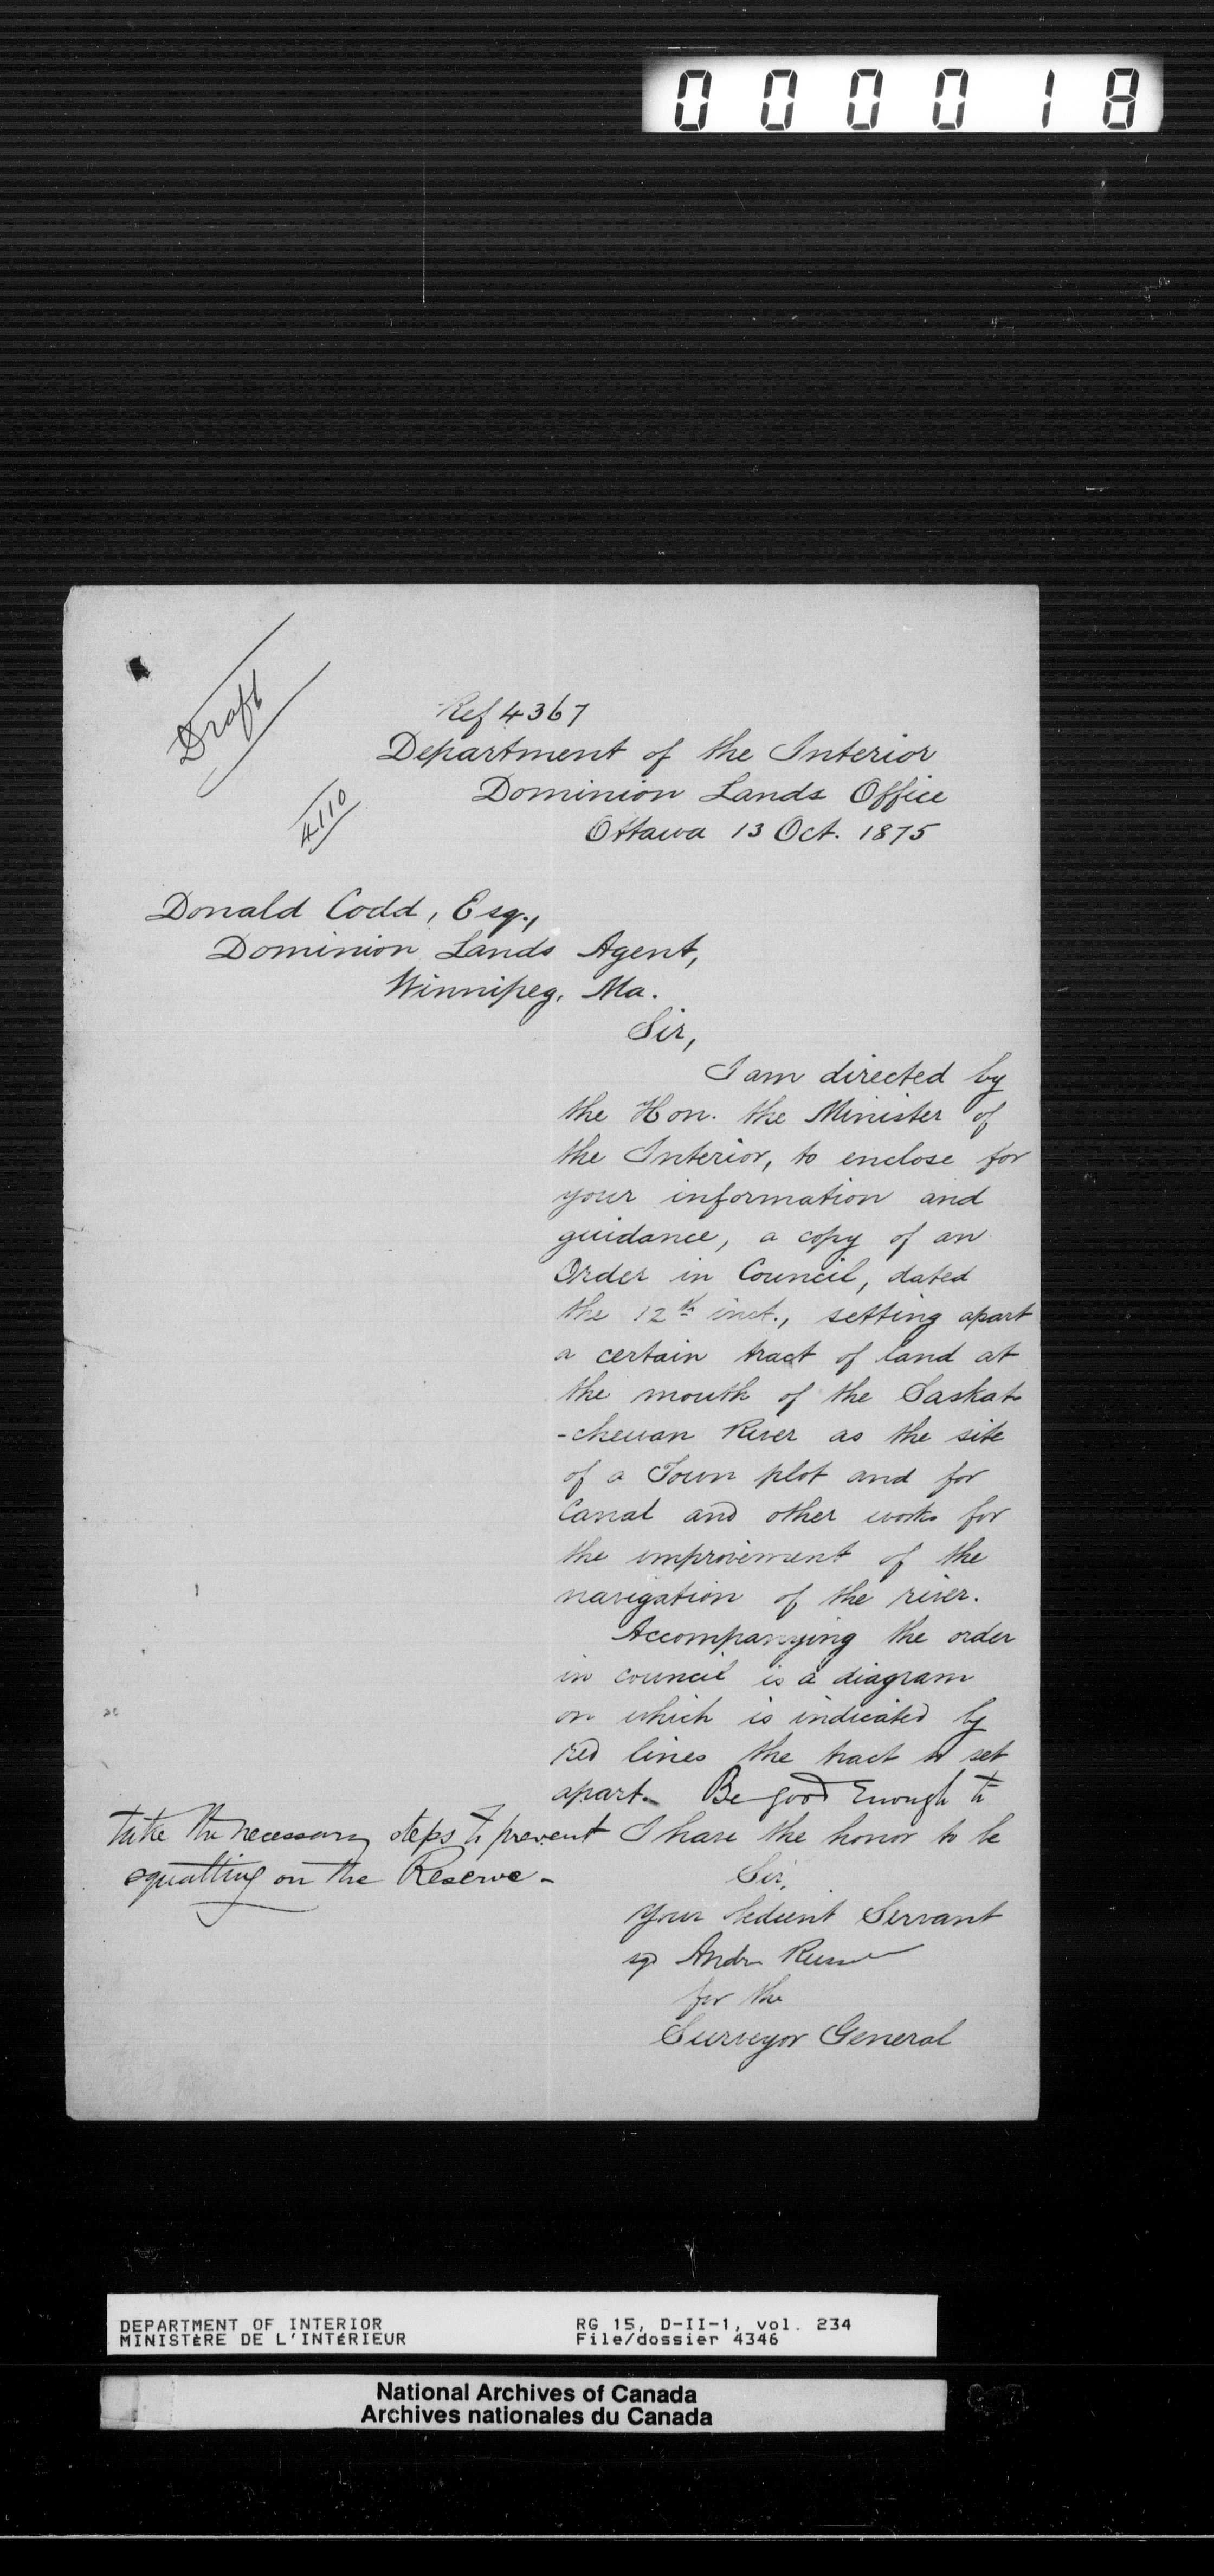 000018
Draft
Ref 4367
Department of the Interior
Dominion Lands Office
Ottawa 13 Oct. 1875
4110
Donald Codd, Esq.,
Dominion Lands Agent,
Winnipeg, Ma.
Sir,
I am directed by
the Hon. the Minister of
the Interior, to enclose for
your information and
guidance, a copy of an
Order in Council, dated
the 12th inst., setting apart
a certain tract of land at
the mouth of the Saskat-
-chewan River as the site
of a Town plot and for
Canal and other works for
the improvement of the
navigation of the river.
Accompanying the order
in council is a diagram
on which is indicated by
red lines the tract so set
apart. Be good Enough to
take the necessary steps to prevent
squatting on the Reserve -
I have the honor to be
Sir,
Your bedient Servant
sgd Andw Russell
for the
Surveyor General
DEPARTMENT OF INTERIOR
MINISTÈRE DE L'INTÉRIEUR
RG 15, D-II-1, vol. 234
File/dossier 4346
National Archives of Canada
Archives nationales du Canada